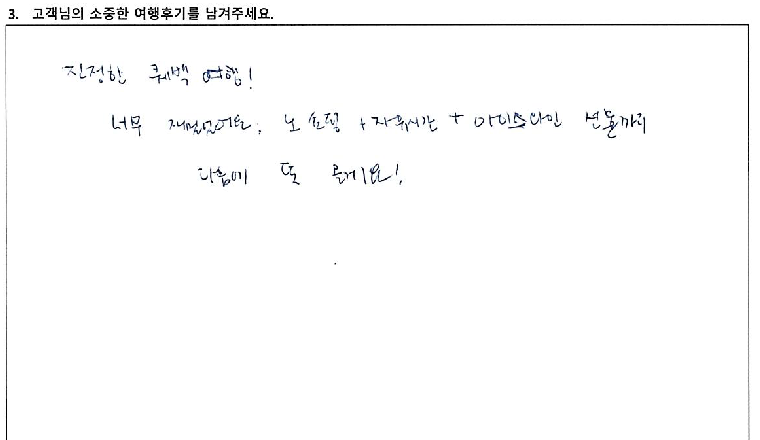 3. 고객님의 소중한 여행후기를 남겨주세요.
진정한 퀘백 여행!
너무 재밌었어요, 노 쇼핑 + 자유시간 + 아이스와인 선물까지
다음에 또 올게요!